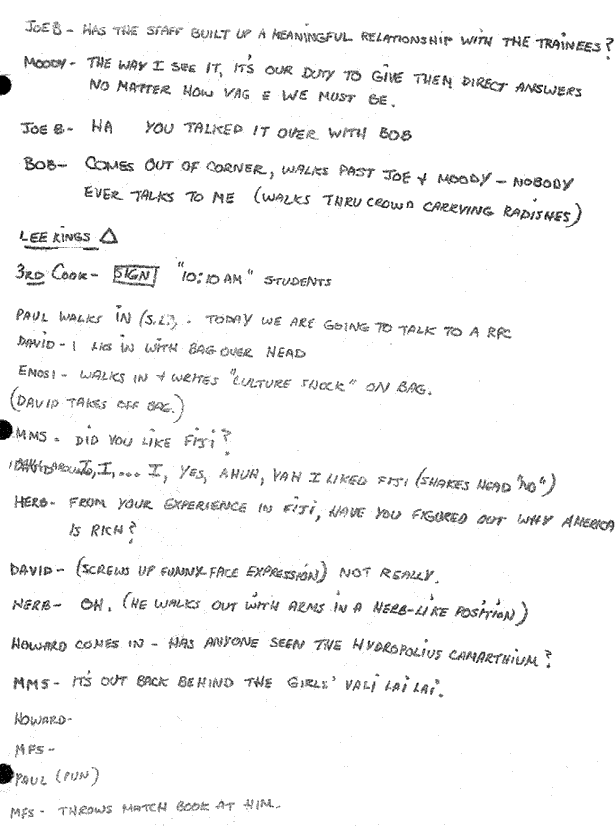 JOE B - HAS THE STAFF BUILT UP A MEANINGFUL RELATIONSHIP WITH THE TRAINEES?
MOODY - THE WAY I SEE IT, IT'S OUR DUTY TO GIVE THEM DIRECT ANSWERS
NO MATTER HOW VAGUE WE MUST BE.
JOE B - HA YOU TALKED IT OVER WITH BOB
BOB - COMES OUT OF CORNER, WALKS PAST JOE + MOODY - NOBODY
EVER TALKS TO ME (WALKS THRU CROWD CARRYING RADISHES)
LEE KINGS △
3RD COOK - SIGN "10:10 AM" STUDENTS
PAUL WALKS IN (S.L.). TODAY WE ARE GOING TO TALK TO A RPC
DAVID - IN WITH BAG OVER HEAD
ENOSI - WALKS IN + WRITES "CULTURE SHOCK" ON BAG.
(DAVID TAKES OFF BAG.)
MMS - DID YOU LIKE FIJI?
I, I, ... I, YES, AHUH, YAH I LIKED FIJI (SHAKES HEAD "NO")
HERB - FROM YOUR EXPERIENCE IN FIJI, HAVE YOU FIGURED OUT WHY AMERICA
IS RICH?
DAVID - (SCREWS UP FUNNY FACE EXPRESSION) NOT REALLY.
HERB - OH. (HE WALKS OUT WITH ARMS IN A HERB-LIKE POSITION)
HOWARD COMES IN - HAS ANYONE SEEN THE HYDROPOLIUS CAMARTHIUM?
MMS - IT'S OUT BACK BEHIND THE GIRLS' VALI LAI LAI.
HOWARD -
MFS -
PAUL (PUN)
MFS - THROWS MATCH BOOK AT HIM.